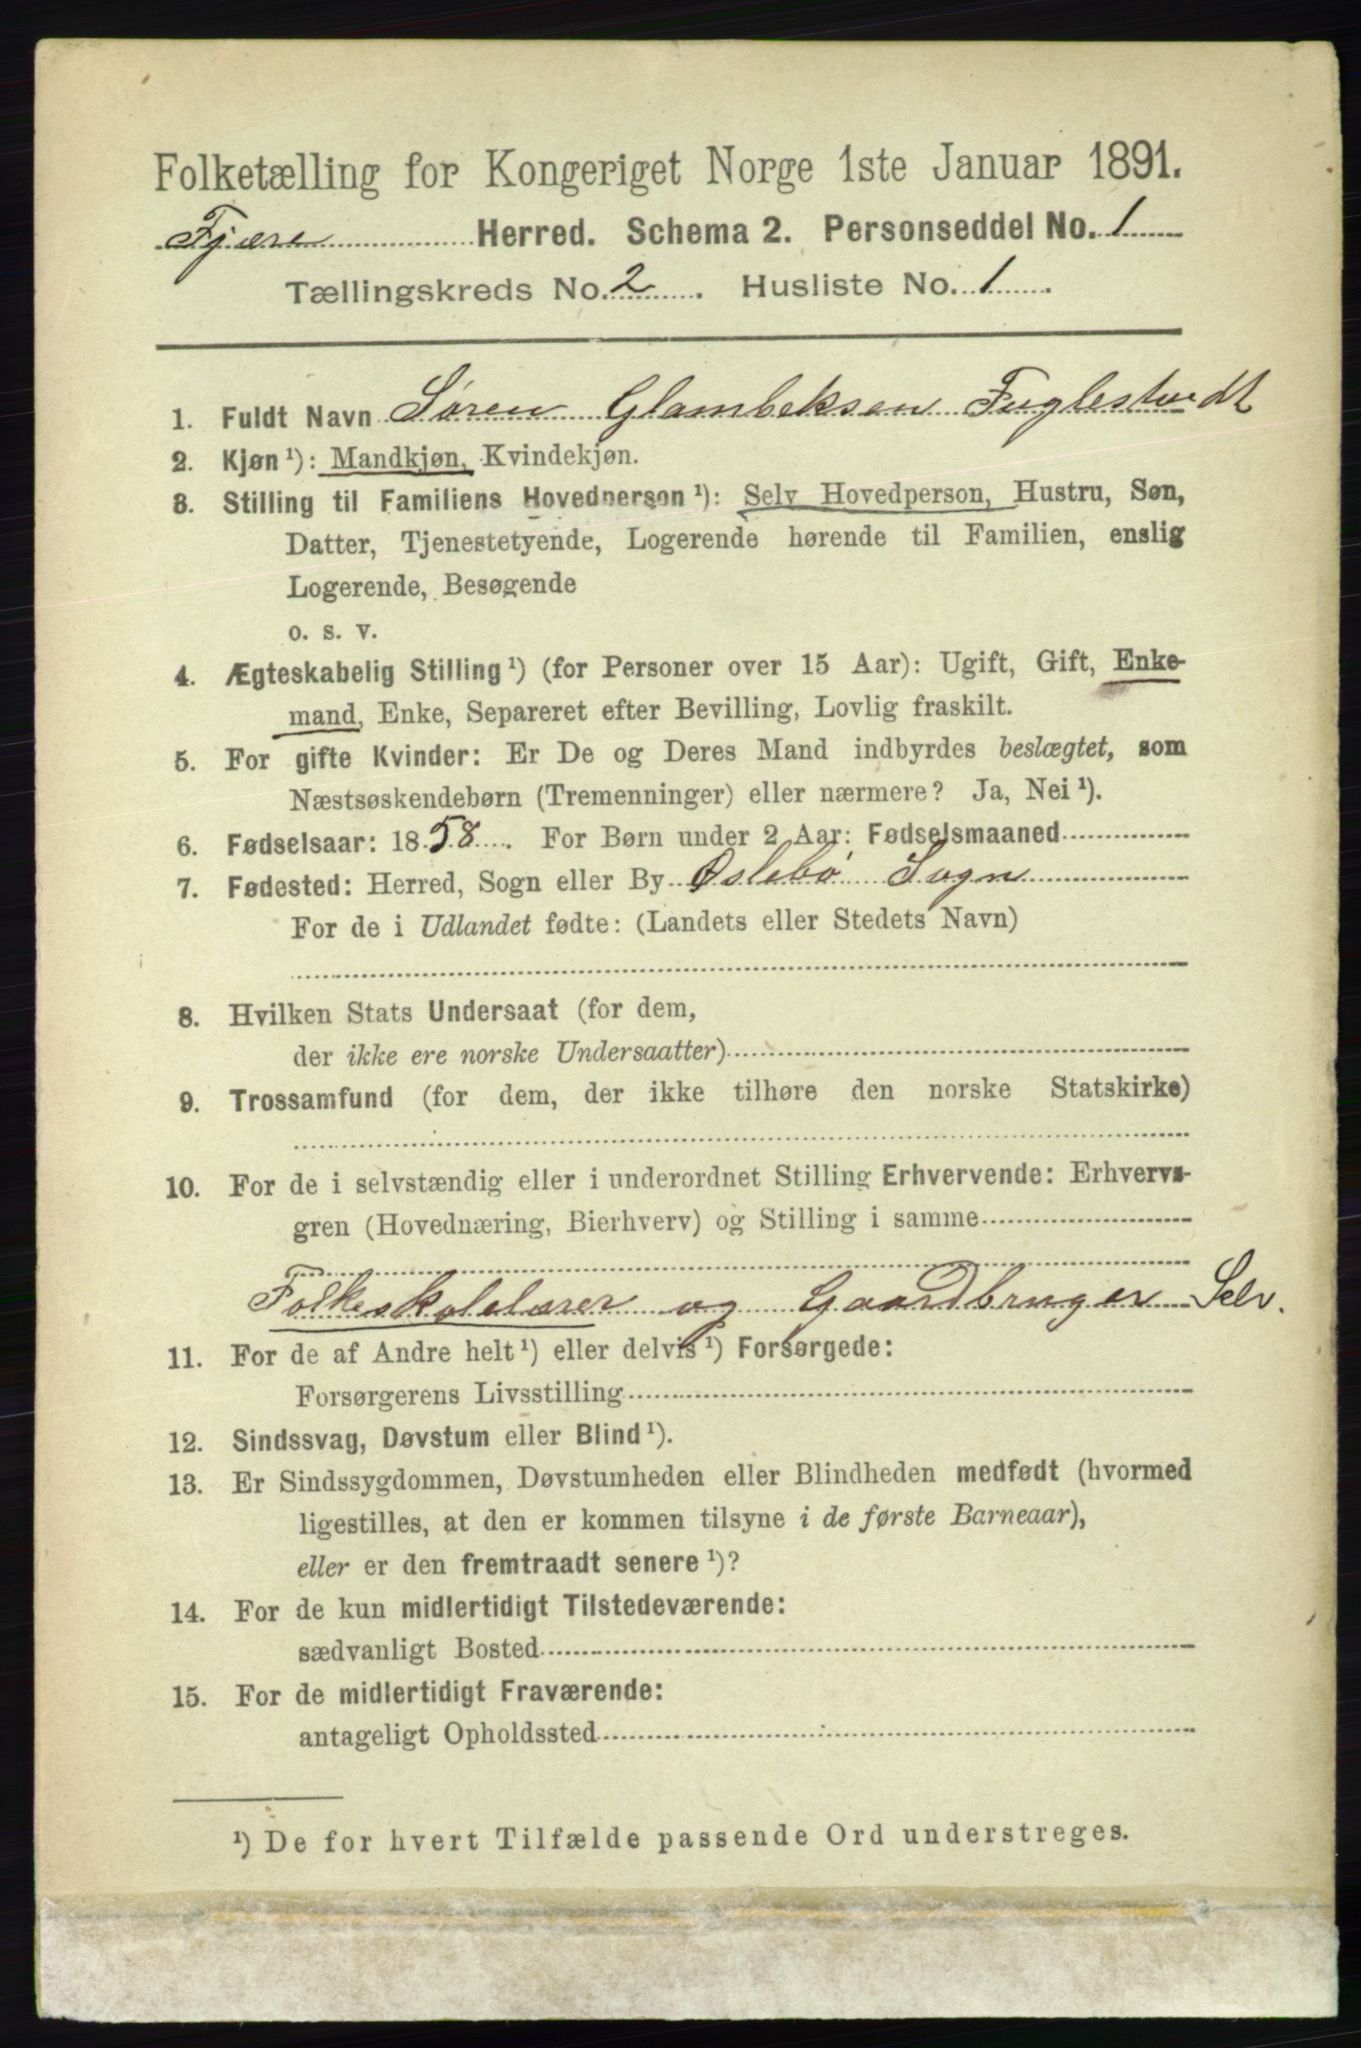 Folketælling for Kongeriget Norge 1ste Januar 1891.
Fjære Herred. Schema 2. Personseddel No. 1
Tællingskreds No. 2. Husliste No. 1.
1. Fuldt Navn Søren Glambeksen Fuglestvedt
2. Kjøn ¹): Mandkjøn, Kvindekjøn.
3. Stilling til Familiens Hovedperson ¹): Selv Hovedperson, Hustru, Søn,
Datter, Tjenestetyende, Logerende hørende til Familien, enslig
Logerende, Besøgende
o. s. v.
4. Ægteskabelig Stilling ¹) (for Personer over 15 Aar): Ugift, Gift, Enke-
mand, Enke, Separeret efter Bevilling, Lovlig fraskilt.
5. For gifte Kvinder: Er De og Deres Mand indbyrdes beslægtet, som
Næstsøskendebørn (Tremenninger) eller nærmere? Ja, Nei ¹).
6. Fødselsaar: 1858. For Børn under 2 Aar: Fødselsmaaned
7. Fødested: Herred, Sogn eller By Øslebø Sogn
For de i Udlandet fødte: (Landets eller Stedets Navn)
8. Hvilken Stats Undersaat (for dem,
der ikke ere norske Undersaatter)
9. Trossamfund (for dem, der ikke tilhøre den norske Statskirke)
10. For de i selvstændig eller i underordnet Stilling Erhvervende: Erhvervs-
gren (Hovednæring, Bierhverv) og Stilling i samme
Folkeskolelærer og Gaardbruger Selv.
11. For de af Andre helt ¹) eller delvis ¹) Forsørgede:
Forsørgerens Livsstilling
12. Sindssvag, Døvstum eller Blind ¹).
13. Er Sindssygdommen, Døvstumheden eller Blindheden medfødt (hvormed
ligestilles, at den er kommen tilsyne i de første Barneaar),
eller er den fremtraadt senere ¹)?
14. For de kun midlertidigt Tilstedeværende:
sædvanligt Bosted
15. For de midlertidigt Fraværende:
antageligt Opholdssted
¹) De for hvert Tilfælde passende Ord understreges.